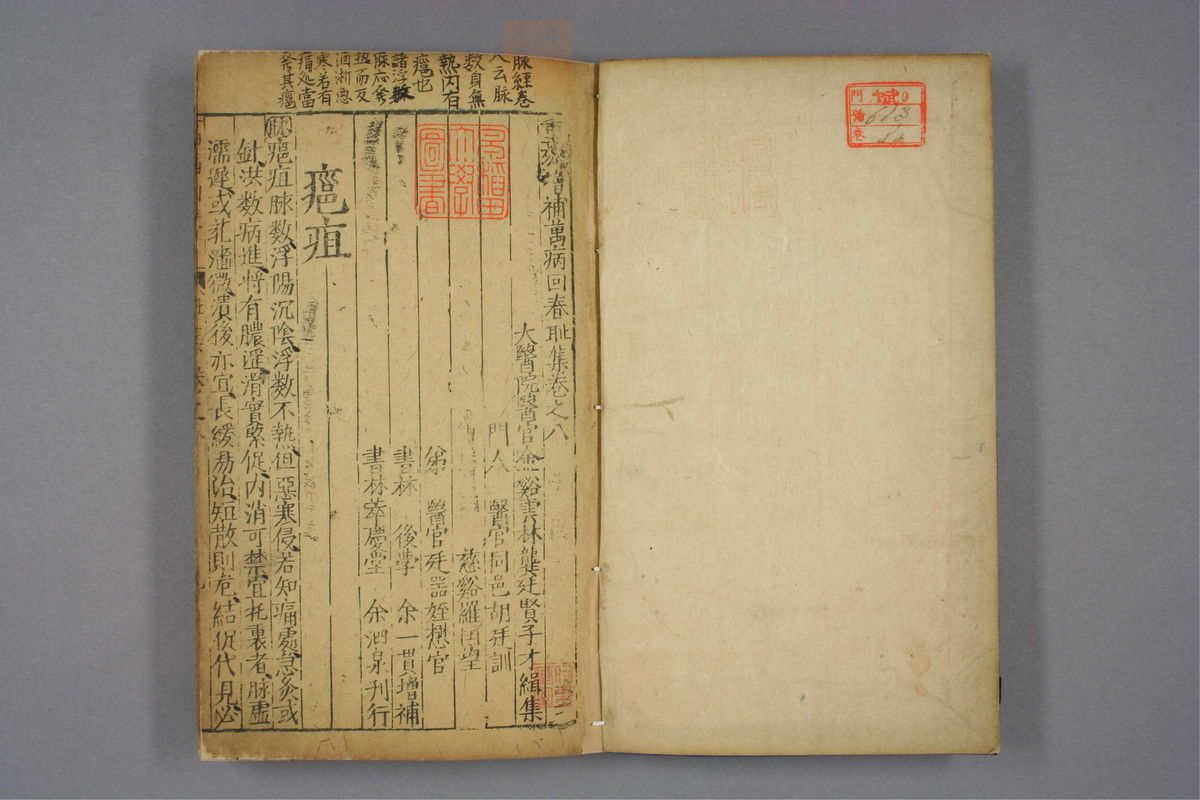 門 9
號 613
卷
脉經卷
云脉
數身無
熱内有
癰也
諸浮數
脉應發
熱而反
洒淅惡
寒若有
痛処當
發其癰
增補萬病回春耻集卷之八
大醫院醫官金谿雲林龔廷賢子才緝集
門人 醫官同邑胡廷訓
慈谿羅
弟 醫官廷器姪懋官
書林 後學 余一貫增補
書林萃慶堂 余泗泉刊行
早稲田大學圖書
癰疽
脉癰疽脉數浮陽沉陰浮數不熱但惡寒侵若知痛處急灸或
針洪數病進將有膿滛滑實緊促内消可禁宜托裏者脉虚
濡遲或芤濇微潰後亦宜長緩易治短散則危結促代見必